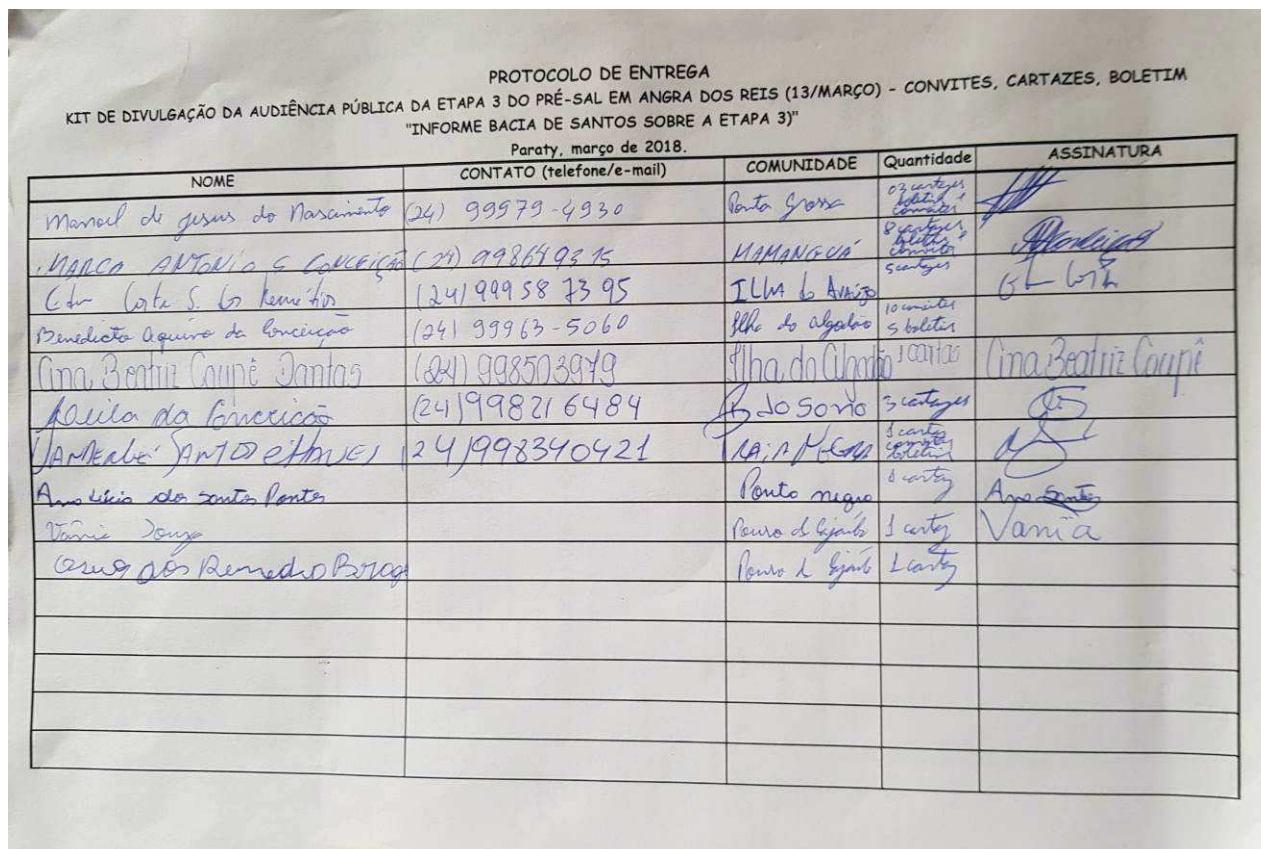 PROTOCOLO DE ENTREGA
KIT DE DIVULGAÇÃO DA AUDIÊNCIA PÚBLICA DA ETAPA 3 DO PRÉ-SAL EM ANGRA DOS REIS (13/MARÇO) - CONVITES, CARTAZES, BOLETIM
"INFORME BACIA DE SANTOS SOBRE A ETAPA 3)"
Paraty, março de 2018.
NOME CONTATO (telefone/e-mail) COMUNIDADE Quantidade ASSINATURA
Manoel de Jesus do Nascimento (24) 99979-4930 Ponta Grossa cartazes
MARCO ANTONIO S CONCEIÇÃO (24) 998649315 MAMANGUÁ 8 cartazes
Costa S. dos Remédios (24) 99958 7395 ILHA do ARAÚJO 5 cartazes
Benedicto Aquino da Conceição (24) 99963-5060 Ilha do Algodão 10 convites 5 boletins
Ana Beatriz Coupê Dantas (24) 998503979 Ilha do Algodão 1 cartas Ana Beatriz Coupê
da Conceição (24) 998216484 do Sono 3 cartazes
(24) 998340421 1 cartaz
dos Santos Pontes negra 1 cartaz Ana Santos
Vânia Souza Pouso d Cajaíb 1 cartaz Vania
dos Remedio Pouso d Cajaíb 1 cartaz